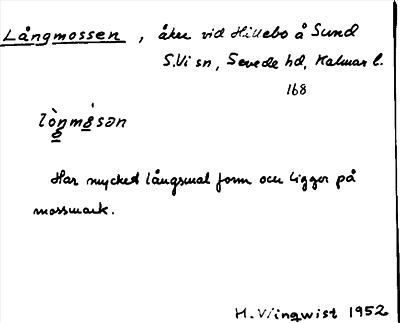 Långmossen, åker vid Hillebo å Sund
S.Vi sn, Sevede hd, Kalmar l.
168
lòŋmósən
Har mycket långsmal form och ligger på
mossmark.
H. Wingwist 1952